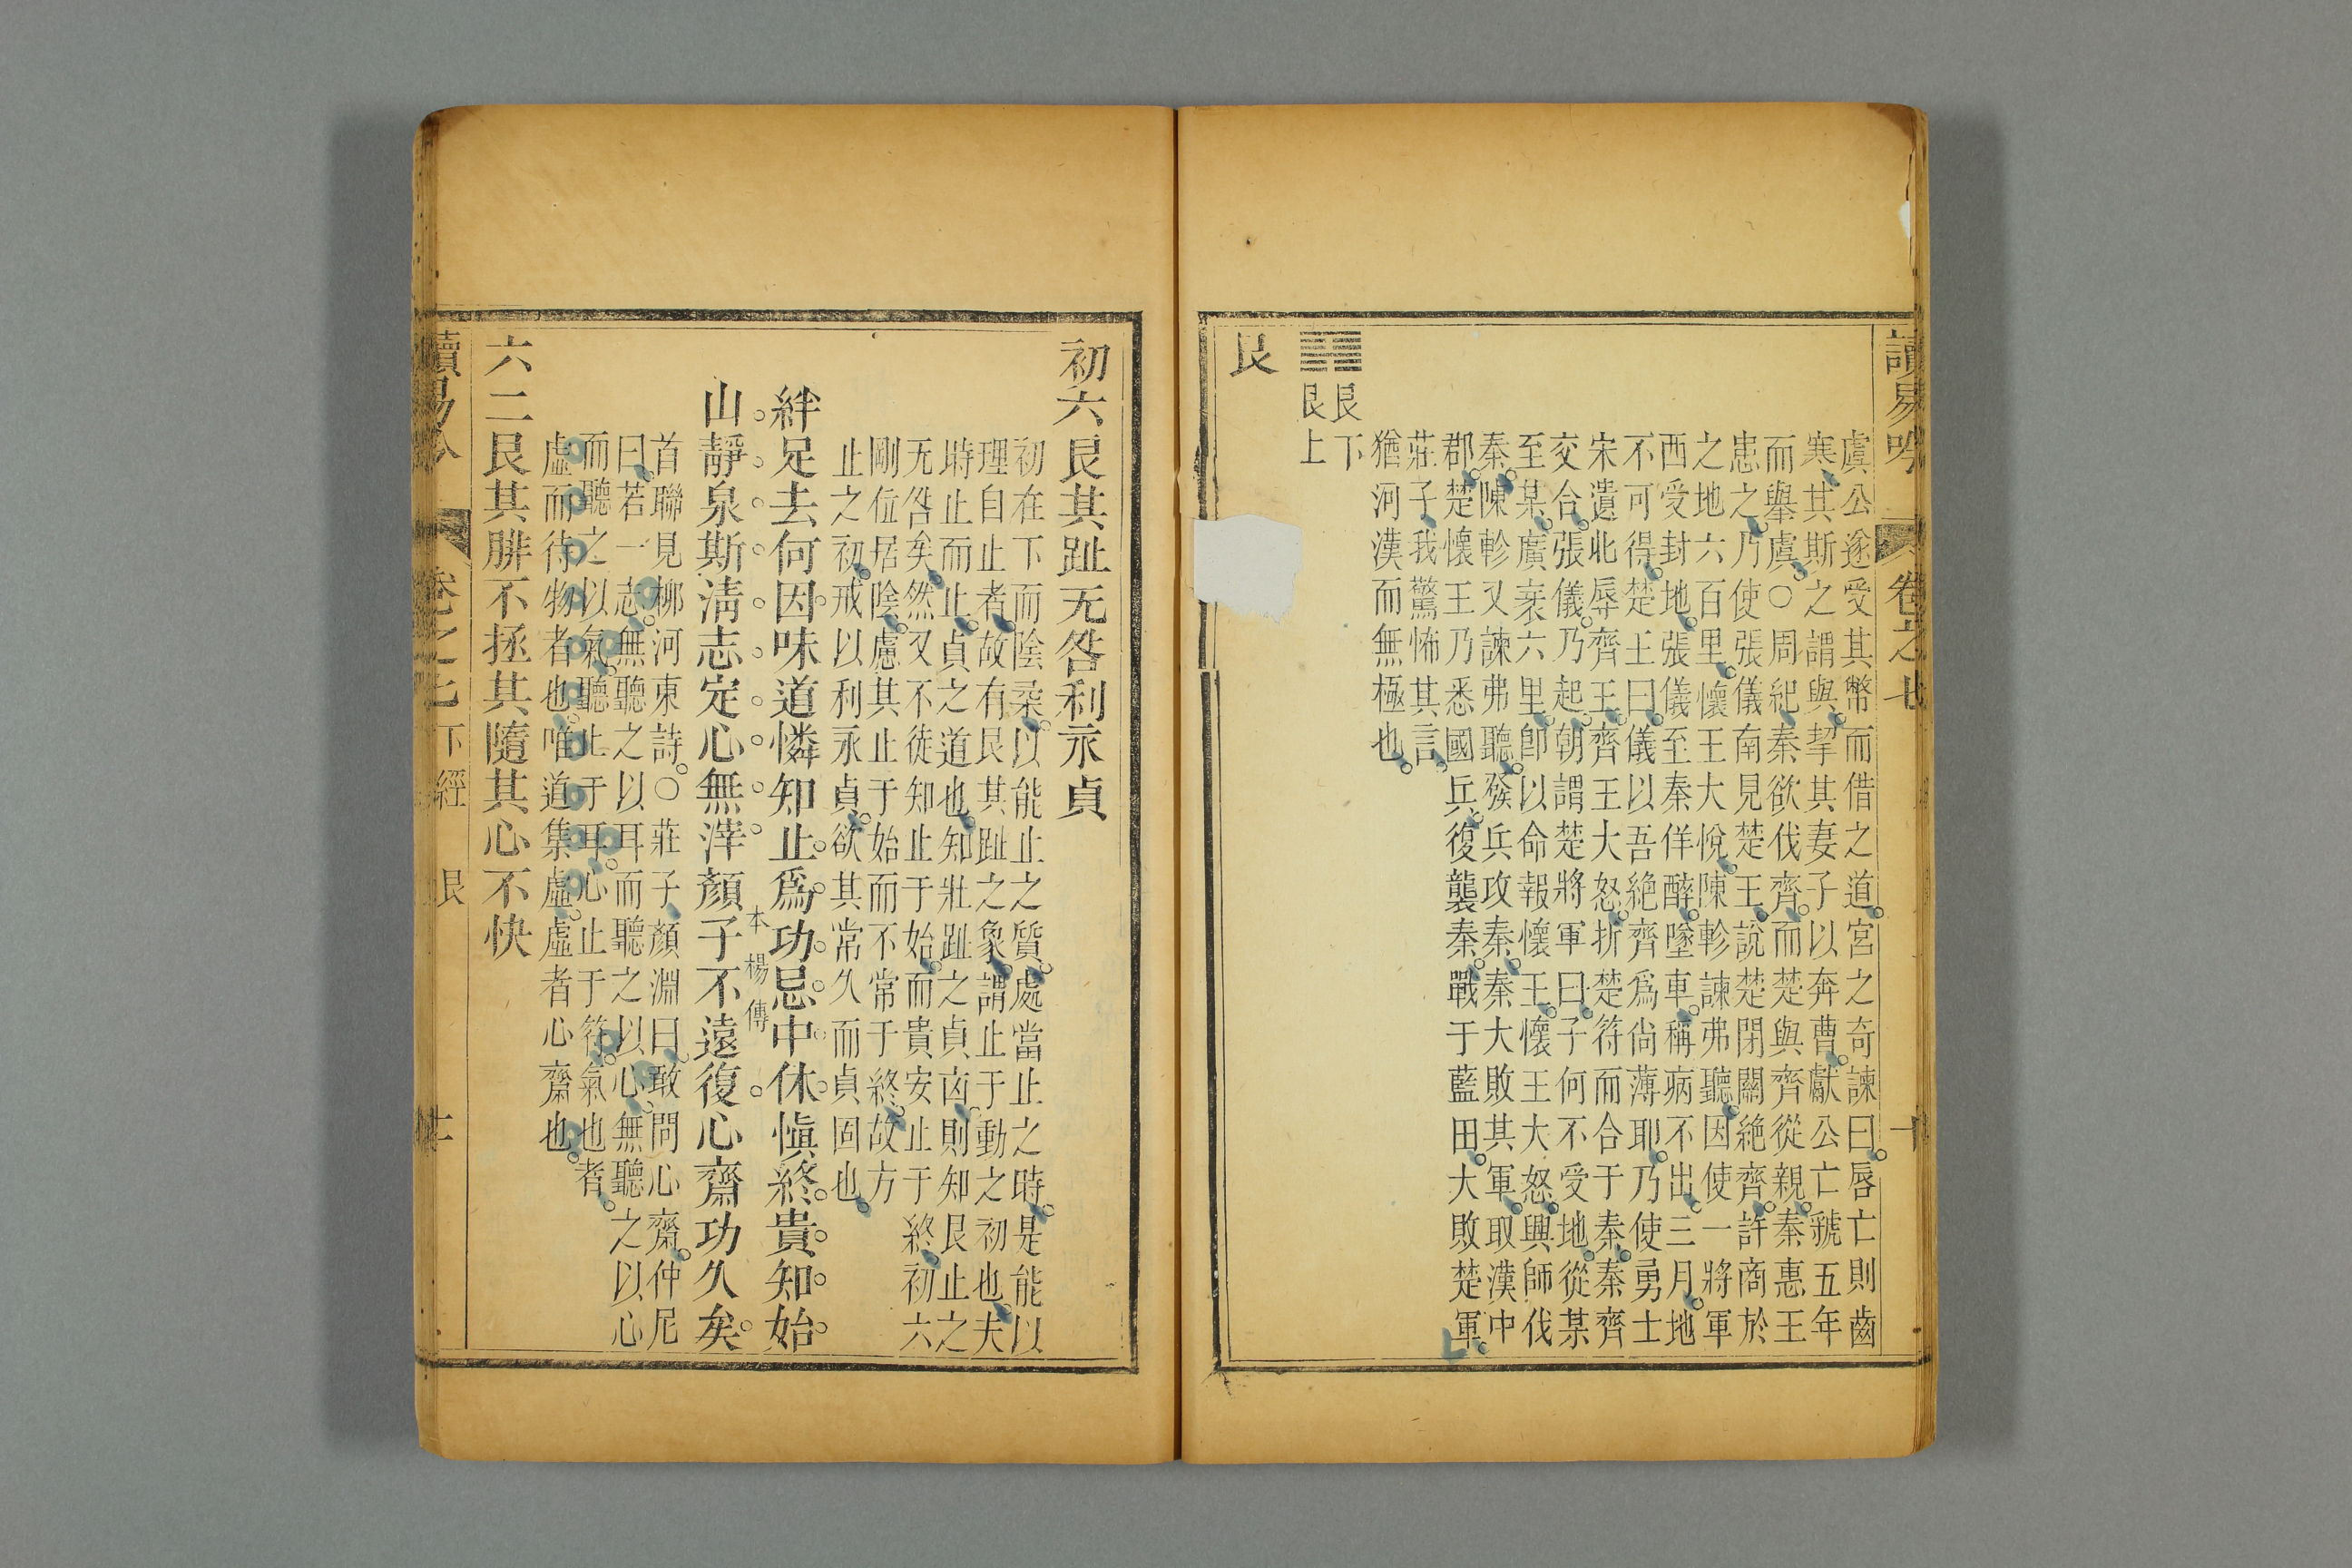 讀易吟 卷之七 十
虞公遂受其幣而借之道宮之奇諫曰唇亡則齒
寒其斯之謂與挈其妻子以奔曹獻公亡虢五年
而舉虞○周紀秦欲伐齊而楚與齊從親秦惠王
患之乃使張儀南見楚王說楚閉關絕齊許商於
之地六百里懷王大悅陳軫諫弗聽因使一將軍
西受封地張儀至秦佯醉墜車稱病不出三月地
不可得楚王曰儀以吾絕齊為尙薄耶乃使勇士
宋遺北辱齊王齊王大怒折楚符而合于秦秦齊
交合張儀乃起朝謂楚將軍曰子何不受地從某
至某廣袤六里卽以命報懷王懷王大怒興師伐
秦陳軫又諫弗聽發兵攻秦秦大敗其軍取漢中
郡楚懷王乃悉國兵復襲秦戰于藍田大敗楚軍
莊子我驚怖其言
猶河漢而無極也
䷳ 艮下
艮上
艮
初六艮其趾无咎利永貞
初在下而陰柔以能止之質處當止之時是能以
理自止者故有艮其趾之象謂止于動之初也夫
時止而止貞之道也知壯趾之貞凶則知艮止之
无咎矣然又不徒知止于始而貴安止于終初六
剛位居陰慮其止于始而不常于終故方
止之初戒以利永貞欲其常久而貞固也
絆足去何因味道憐知止爲功忌中休愼終貴知始
山靜泉斯淸志定心無滓顏子不遠復心齋功久矣
本楊傳
首聯見柳河東詩○莊子顏淵曰敢問心齋仲尼
曰若一志無聽之以耳而聽之以心無聽之以心
而聽之以氣聽止于耳心止于符氣也者
虛而待物者也唯道集虛虛者心齋也
六二艮其腓不拯其隨其心不快
讀易 卷之七 下經 艮